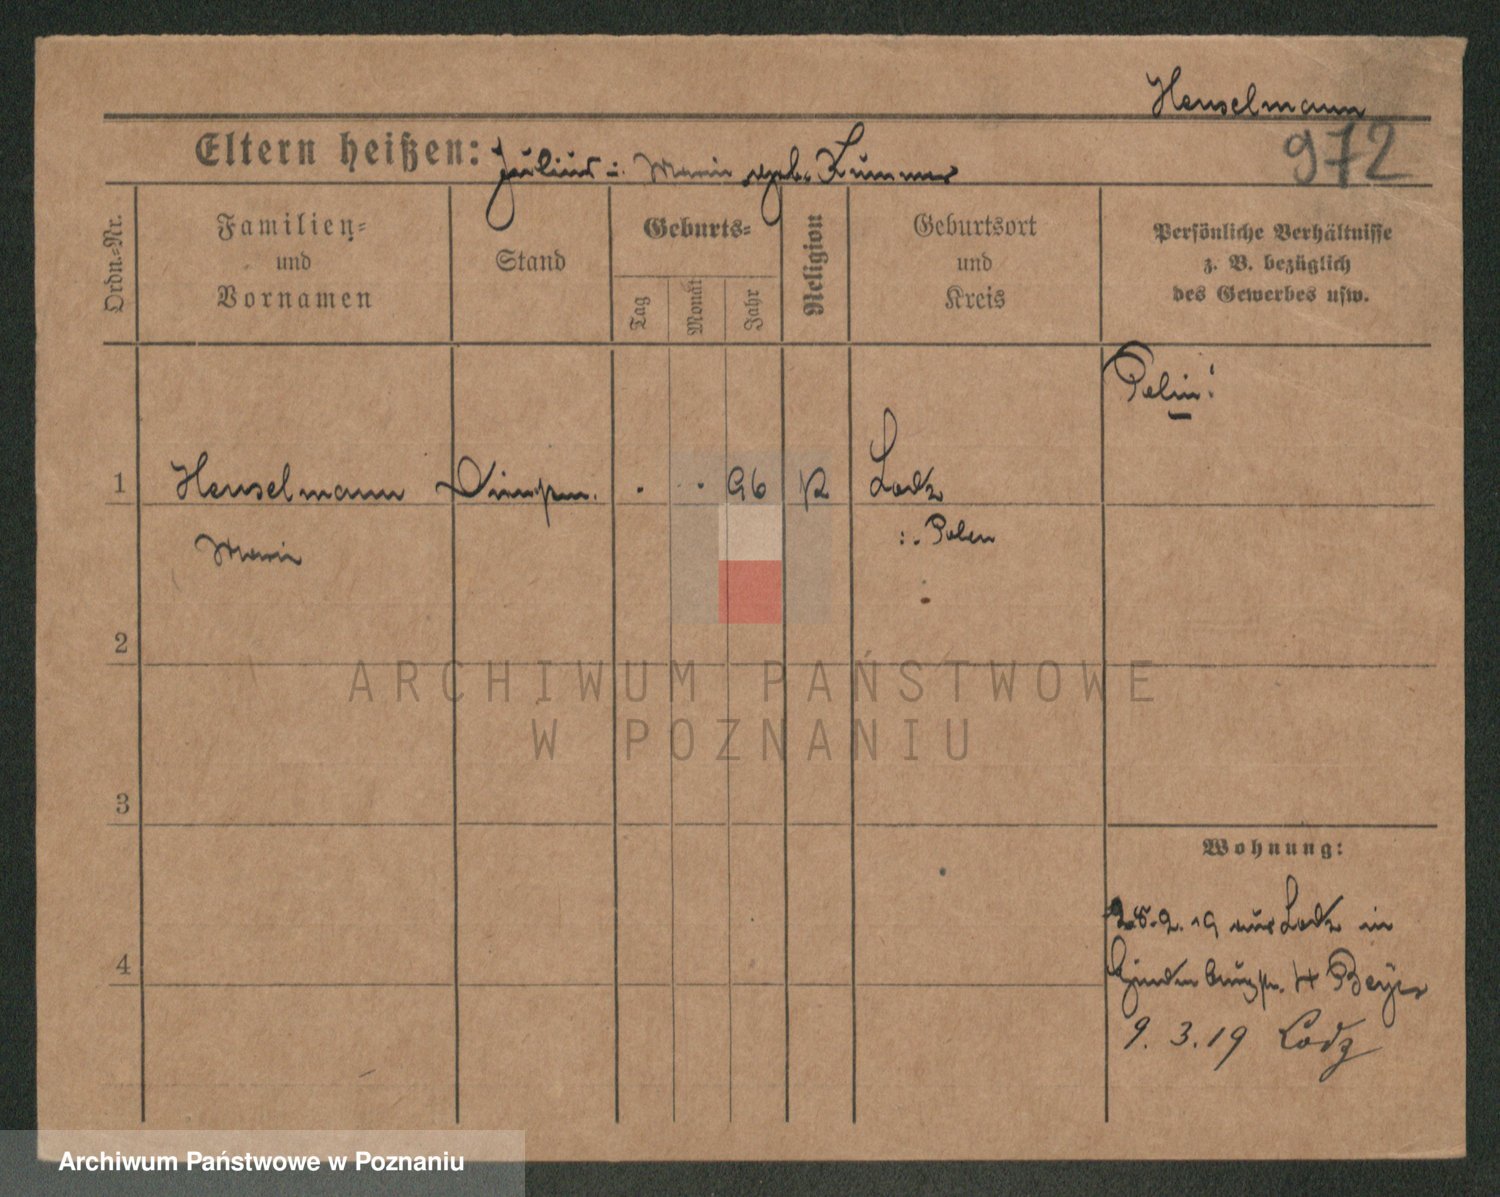 Henselmann
972
Eltern heißen: Julius u. Marie geb. Kummer
Ordn.-Nr.
Familien=
und
Vornamen
Stand
Geburts=
Tag
Monat
Jahr
Religion
Geburtsort
und
Kreis
Persönliche Verhältnisse
z. B. bezüglich
des Gewerbes usw.
Polin!
1 Henselmann . . 96 K Lodz
Marie
: . Polen
2
ARCHIWUM PAŃSTWOWE
W POZNANIU
3
Wohnung:
28.2.19 aus Lodz in
4
Hindenburgstr. 4 Beyer
9.3.19 Lodz
Archiwum Państwowe w Poznaniu